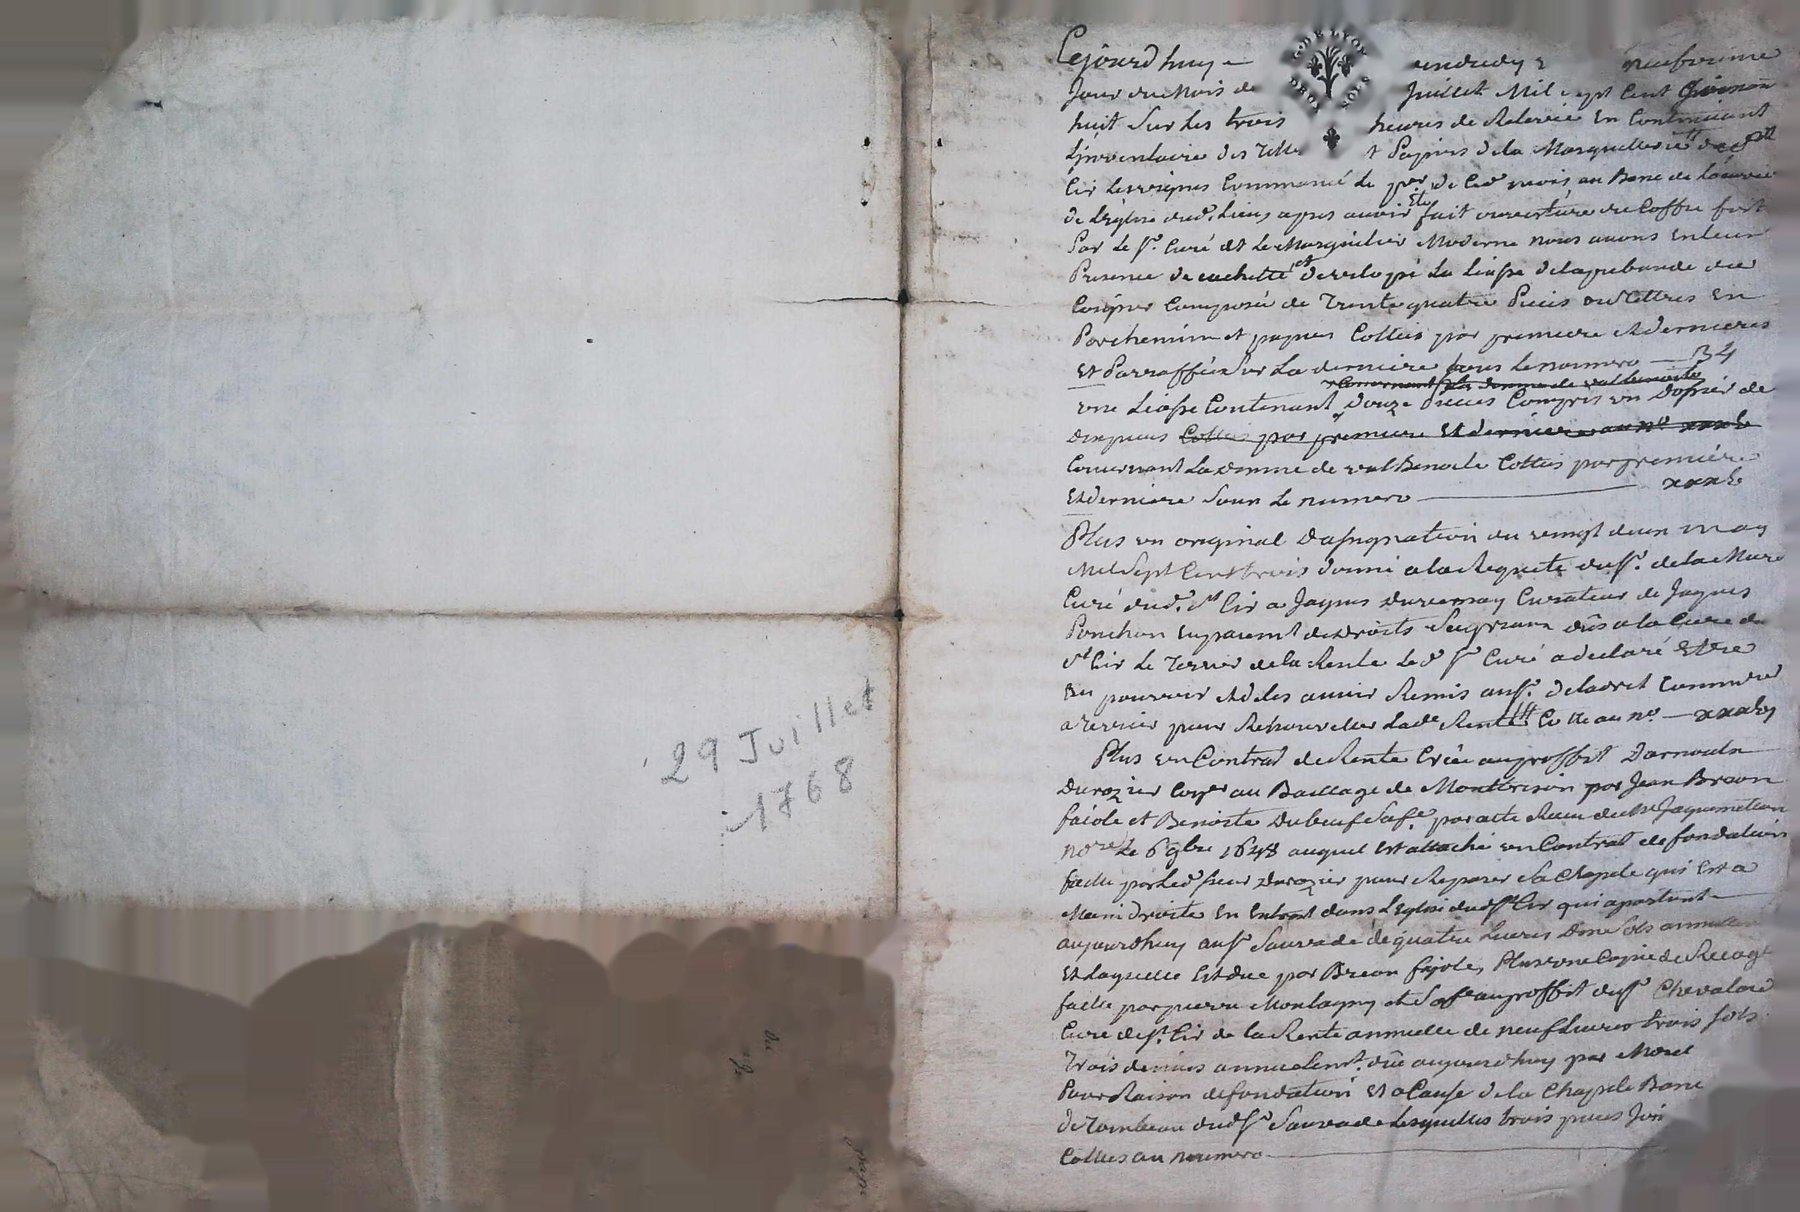 29 Juillet
1768
G. DE LYON
DEUX SOLS
Cejourdhuy vendredy vingt neufvieme
Jour du Mois de Juillet Mil sept Cent Soixante
huit Sur les trois heures de Relevée En Continuant
L'inventaire des Titres et Papiers de la Marguillerie de St
Cir Commancé le de Ced. mois au Banc de L'oeuvre
de L'Eglise dud. Lieu, apres avoir Ete fait ouverture du Coffre fort
Par le Sr. Curé et le Marguilier Moderne nous avons En leur
Presence decachetté et developé La Liasse de la prebande des
Composée de Trente quatre Pieces ou Titres En
Parchemin et papier Cottées par premiere et derniere
Et Parraffée Sur La derniere sous le numero — 34
une Liasse Contenant Douze Pieces Compris un Dossier de
Six pieces Cottées par premiere Et derniere au no xxxv
Concernant La Domme de valBenoite Cottées par premiere
Et derniere Sous le numero — xxxv
Plus un original D'assignation du vingt deux May
Mil Sept Cent trois donné a la Requete du Sr. de la Mure
Curé dud. St Cir a Jaques Duvernay Curateur de Jaques
Ponchon En paiemt des droits Seigneuriaux dûs a la Cure de
St Cir le Terrier de la Rente Led Sr Curé a declaré Etre
En pouvoir Et les avoir Remis au Sr. Commissre
a Terrier pour Renouveller lade Rente Cotté au no — xxxvj
Plus un Contrat de Rente Créé au proffit D'arnould
Durozier au Baillage de Montbrison par Jean Breon
faiole et Benoite Dubeuf Sa fe. par acte Reçu de Me Jaquemetton
nore Le 6 9bre 1648 auquel Est attaché un Contrat de fondation
faitte par Led Sieur Durozier pour Reparer Sa Chapele qui Est a
Main droite En Entrant dans L'Eglise dud St Cir qui apartient
aujourdhuy au Sr Sauvade de quatre Livres Dme Sols annuelle
Et Laquelle Est due par Breon fajole, Plus une Copie de
faitte par pierre Montagny et Sa fe au proffit du Sr Chevalard
Curé de St. Cir de la Rente annuelle de neuf Livres trois sols
Trois deniers annuelemt. dûe aujourdhuy par Morel
Pour Raison de fondation Et a Cause de la Chapele Banc
de Tombeau dud Sr Sauvade Lesquelles trois pieces Son
Cottées au numero
du